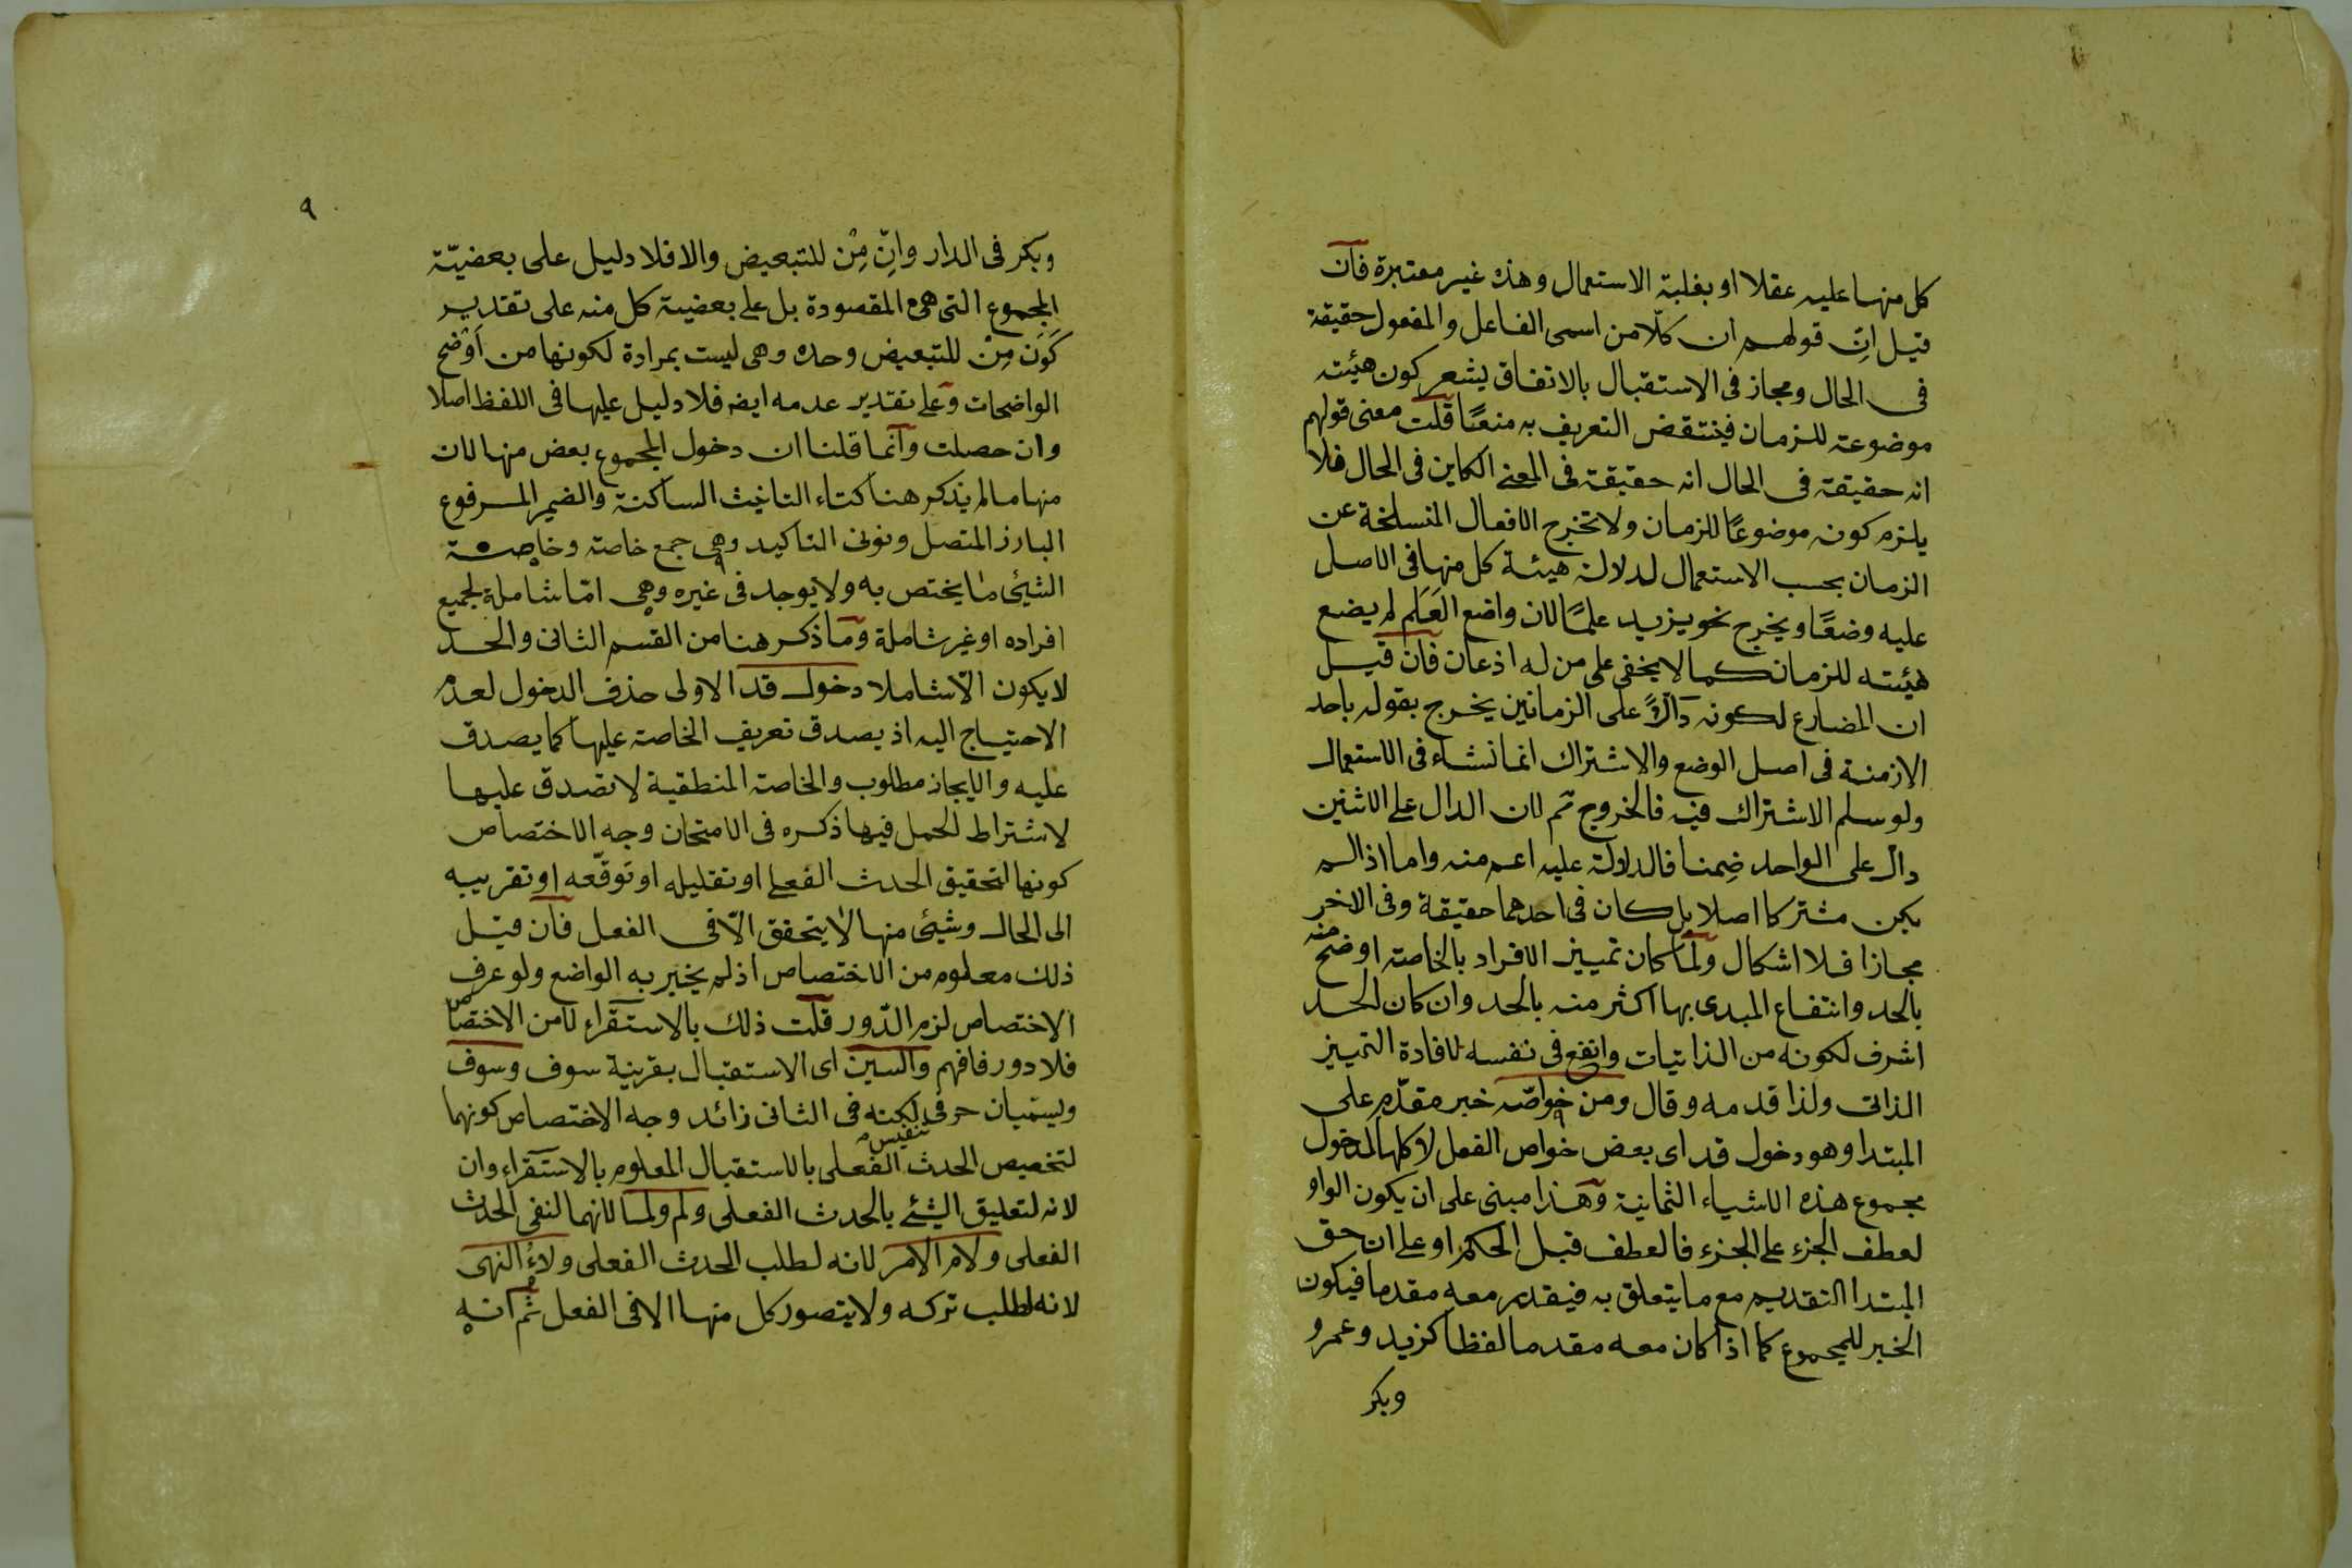 كل منها عليه عقلا او بغلبة الاستعمال وهذه غير معتبرة فان
قيل انّ قولهم ان كلّا من اسمى الفاعل والمفعول حقيقة
فى الحال ومجاز فى الاستقبال بالاتفاق يشعر كون هيئته
موضوعة للزمان فينتقض التعريف به منعًا قلت معنى قولهم
انه حقيقة فى الحال انه حقيقة فى المعنى الكاين فى الحال فلا
يلزم كونه موضوعًا للزمان ولا تخرج الافعال المنسلخة عن
الزمان بحسب الاستعمال لدلالة هيئة كل منها فى الاصل
عليه وضعًا ويخرج نحو يزيد علمًا لان واضع العَلَم لم يضع
هيئته للزمان كما لا يخفى على من له اذعان فان قيل
ان المضارع لكونه دالًّا على الزمانين يخرج بقوله باحد
الازمنة فى اصل الوضع والاشتراك انما نشاء فى الاستعمال
ولو سلم الاشتراك فيه فالخروج ثم لان الدال على الاثنين
دال على الواحد ضِمنا فالدلالة عليه اعم منه واما اذا لم
يكن مشتركا اصلا بل كان فى احدهما حقيقة وفى الاخر
مجازا فلا اشكال ولمّا كان تمييز الافراد بالخاصة اوضح منه
بالحد وانتفاع المبدى بها اكثر منه بالحد وان كان الحد
اشرف لكونه من الذاتيات وانفع فى نفسه لافادة التمييز
الذاتى ولذا قدمه وقال ومن خواصّه خبر مقدّم على
المبتدا وهو دخول قد اى بعض خواص الفعل لا كلها لدخول
مجموع هذه الاشياء الثمانية وهذا مبنى على ان يكون الواو
لعطف الجزء على الجزء فالعطف قبل الحكم او على ان حق
المبتدا التقديم مع ما يتعلق به فيقدم معه مقدما فيكون
الخبر للمجموع كما اذا كان معه مقدما لفظا كزيد وعمرو
وبكر
٩
وبكر فى الدار وانّ مِنْ للتبعيض والا فلا دليل على بعضيّة
المجموع التى هى المقصودة بل على بعضية كل منه على تقدير
كون مِنْ للتبعيض وحده وهى ليست بمرادة لكونها من اوضح
الواضحات وعلى تقدير عدمه ايضا فلا دليل عليها فى اللفظ اصلا
وان حصلت وانّما قلنا ان دخول المجموع بعض منها لان
منها ما لم يذكر هنا كتاء التانيث الساكنة والضمير المرفوع
البارز المتصل ونونى التاكيد وهى جمع خاصة وخاصة
الشيئ ما يختص به ولا يوجد فى غيره وهى امّا شاملة لجميع
افراده او غير شاملة وما ذكر هنا من القسم الثانى والحد
لا يكون الّا شاملا دخول قد الاولى حذف الدخول لعدم
الاحتياج اليه اذ يصدق تعريف الخاصة عليها كما يصدق
عليه والايجاز مطلوب والخاصة المنطقية لا تصدق عليها
لاشتراط الحمل فيها ذكره فى الامتحان وجه الاختصاص
كونها لتحقيق الحدث الفعلى او تقليله او توقّعه او تقريبه
الى الحال وشيئ منها لا يتحقق الّا فى الفعل فان قيل
ذلك معلوم من الاختصاص اذ لم يخبر به الواضع ولو عرف
الاختصاص لزم الدّور قلت ذلك بالاستقراء لا من الاختصاص
فلا دور فافهم والسين اى الاستقبال بقرينة سوف وسوف
ويسمّيان حرفى تنفيس لكنه فى الثانى زائد وجه الاختصاص كونهما
لتخصيص الحدث الفعلى بالاستقبال المعلوم بالاستقراء وان
لانه لتعليق الشيئ بالحدث الفعلى ولم ولما لانهما لنفى الحدث
الفعلى ولام الامر لانه لطلب الحدث الفعلى ولاء النهى
لانه لطلب تركه ولا يتصور كل منها الا فى الفعل ثم انه